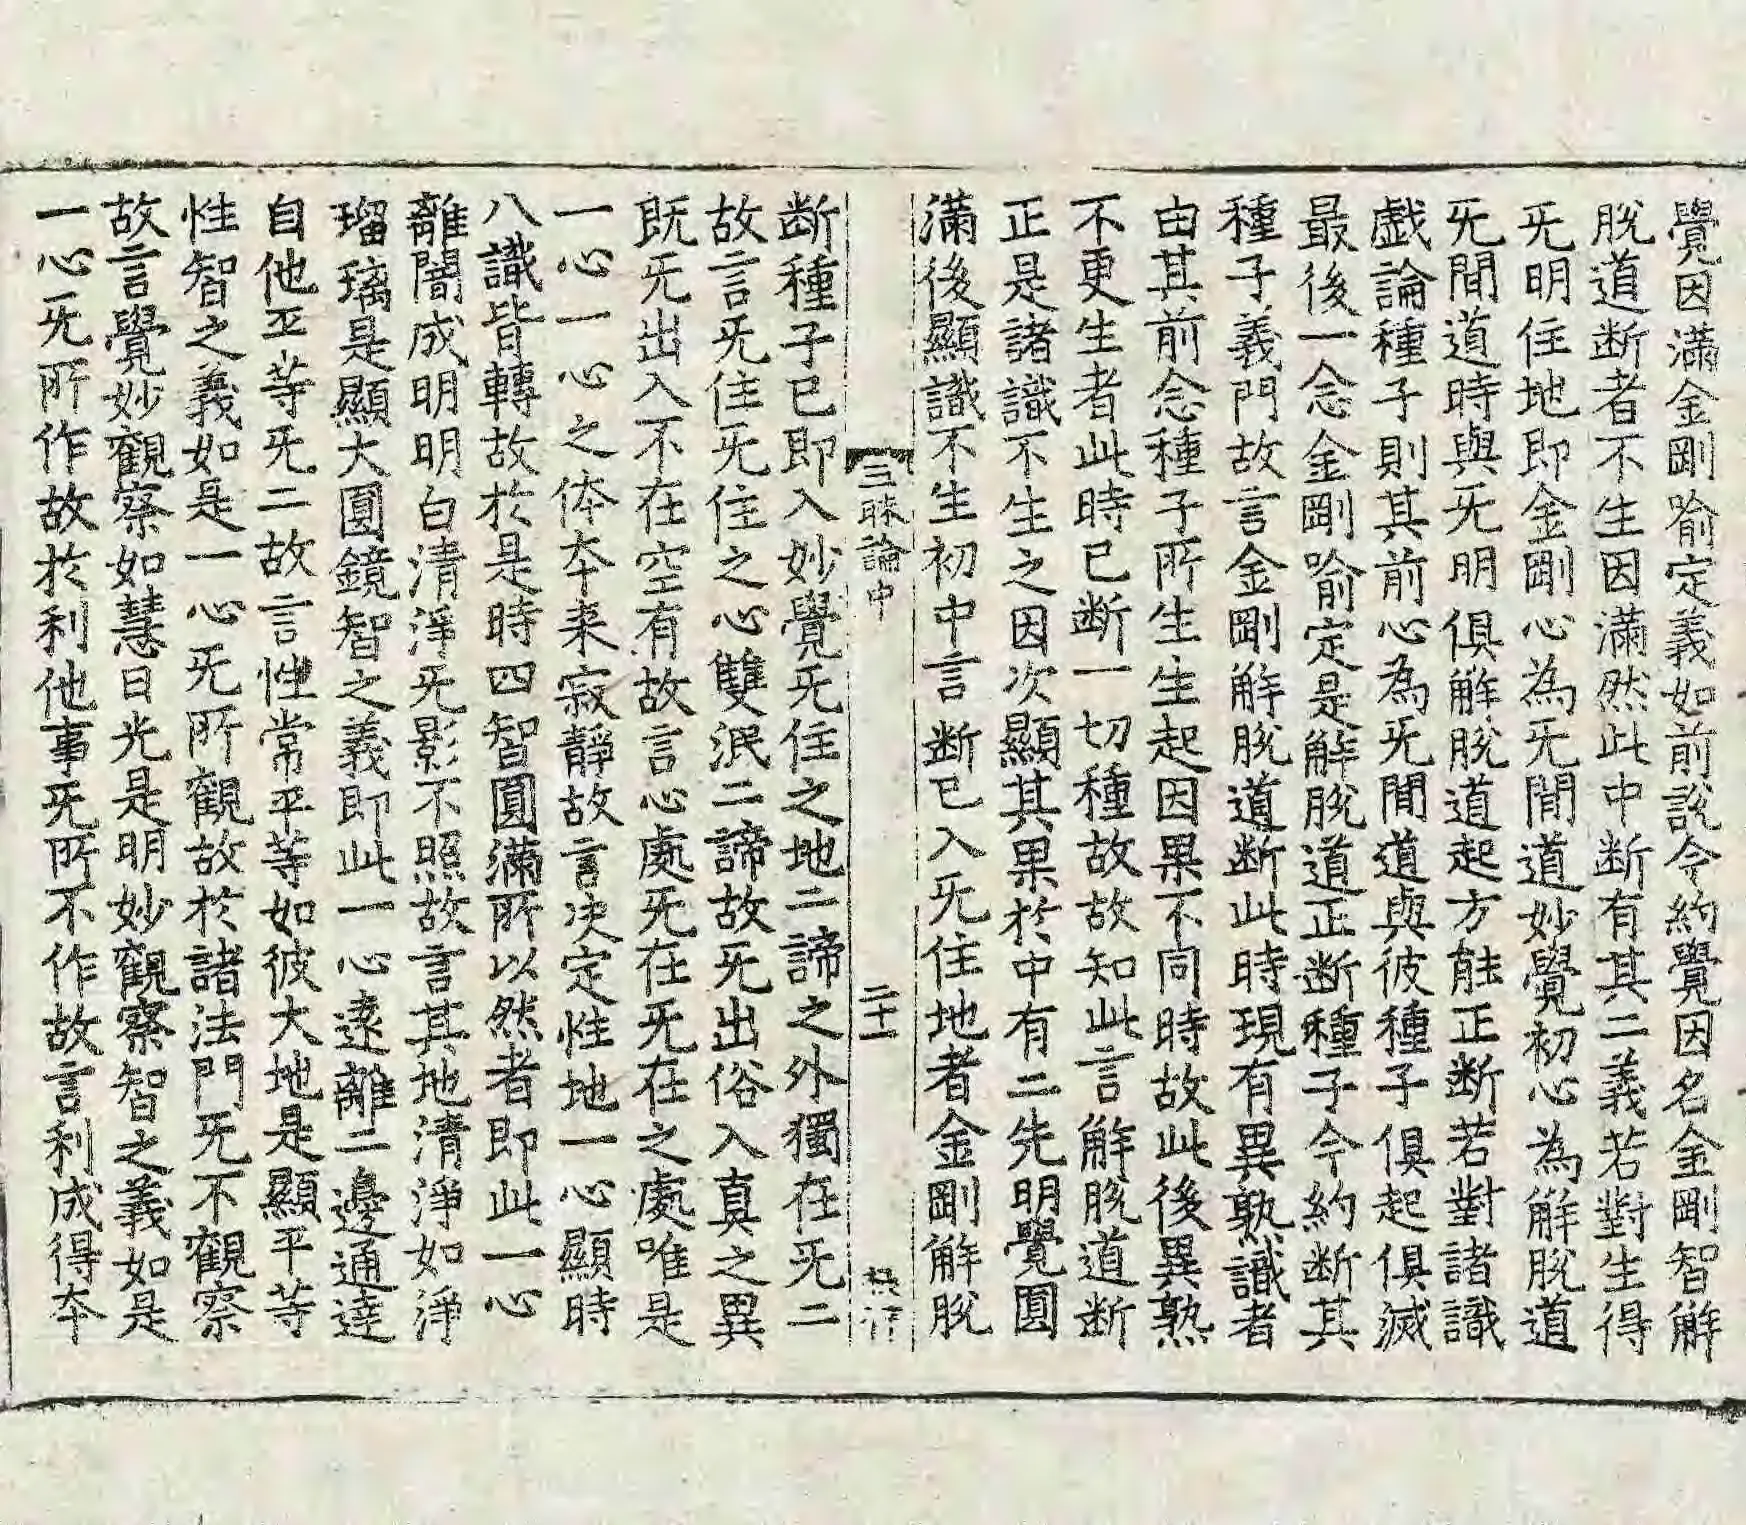 覺因滿金剛喻定義如前說今約覺因名金剛智解
脫道断者不生因滿然此中断有其二義若對生得
旡明住地即金剛心為旡間道妙覺初心為解脫道
旡間道時與旡明俱解脫道起方能正断若對諸識
戱論種子則其前心為旡間道與彼種子俱起俱滅
最後一念金剛喻定是解脫道正断種子今約断其
種子義門故言金剛解脫道断此時現有異熟識者
由其前念種子所生生起因果不同時故此後異熟
不更生者此時已断一切種故故知此言解脫道断
正是諸識不生之因次顯其果於中有二先明覺圓
滿後顯識不生初中言断已入旡住地者金剛解脫
三昧論中 二十一
断種子已即入妙覺旡住之地二諦之外獨在旡二
故言旡住旡住之心雙泯二諦故旡出俗入真之異
既旡出入不在空有故言心處旡在旡在之處唯是
一心一心之体夲来寂靜故言决定性地一心顯時
八識皆轉故於是時四智圓滿所以然者即此一心
離闇成明明白清淨旡影不照故言其地清淨如淨
瑠璃是顯大圓鏡智之義即此一心遠離二邊通達
自他平等旡二故言性常平等如彼大地是顯平等
性智之義如是一心旡所觀故於諸法門旡不觀察
故言覺妙觀察如慧日光是明妙觀察智之義如是
一心旡所作故於利他事旡所不作故言利成得夲